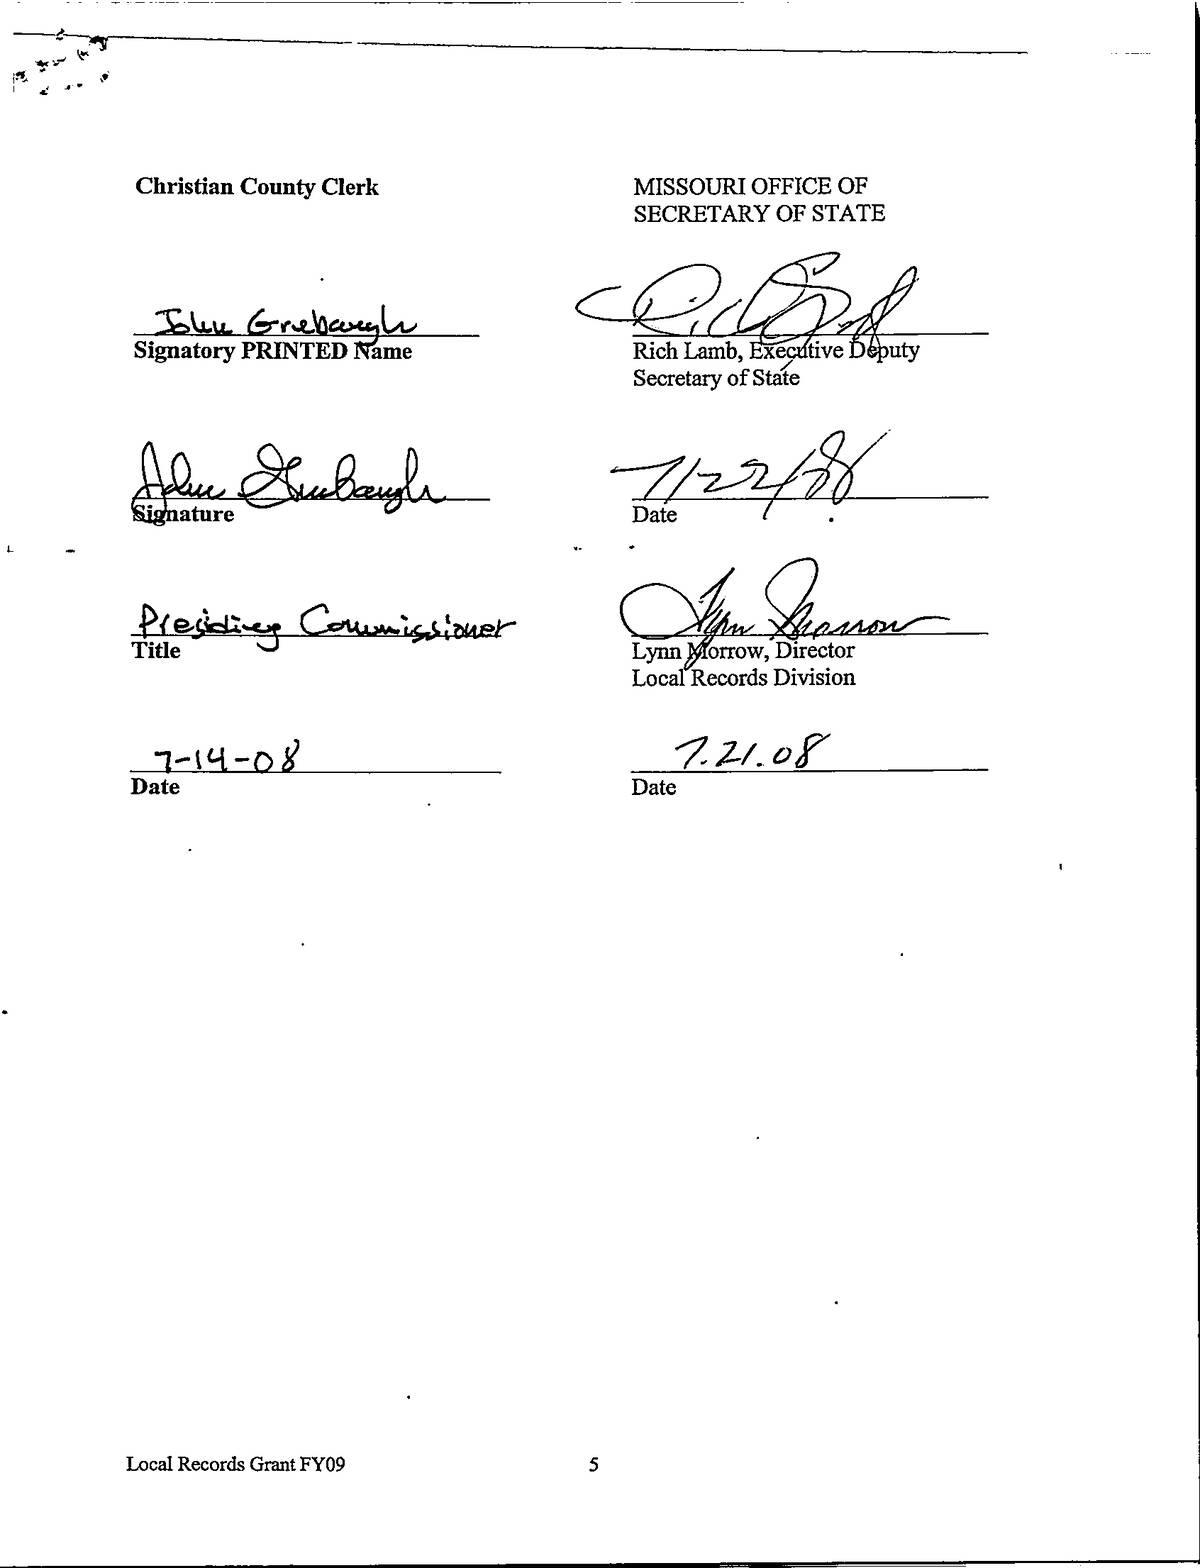 Christian County Clerk
MISSOURI OFFICE OF
SECRETARY OF STATE
John Grubaugh
Signatory PRINTED Name
Rich Lamb, Executive Deputy
Secretary of State
John Grubaugh
Signature
7/22/08
Date
Presiding Commissioner
Title
Lynn Morrow
Lynn Morrow, Director
Local Records Division
7-14-08
Date
7.21.08
Date
Local Records Grant FY09
5